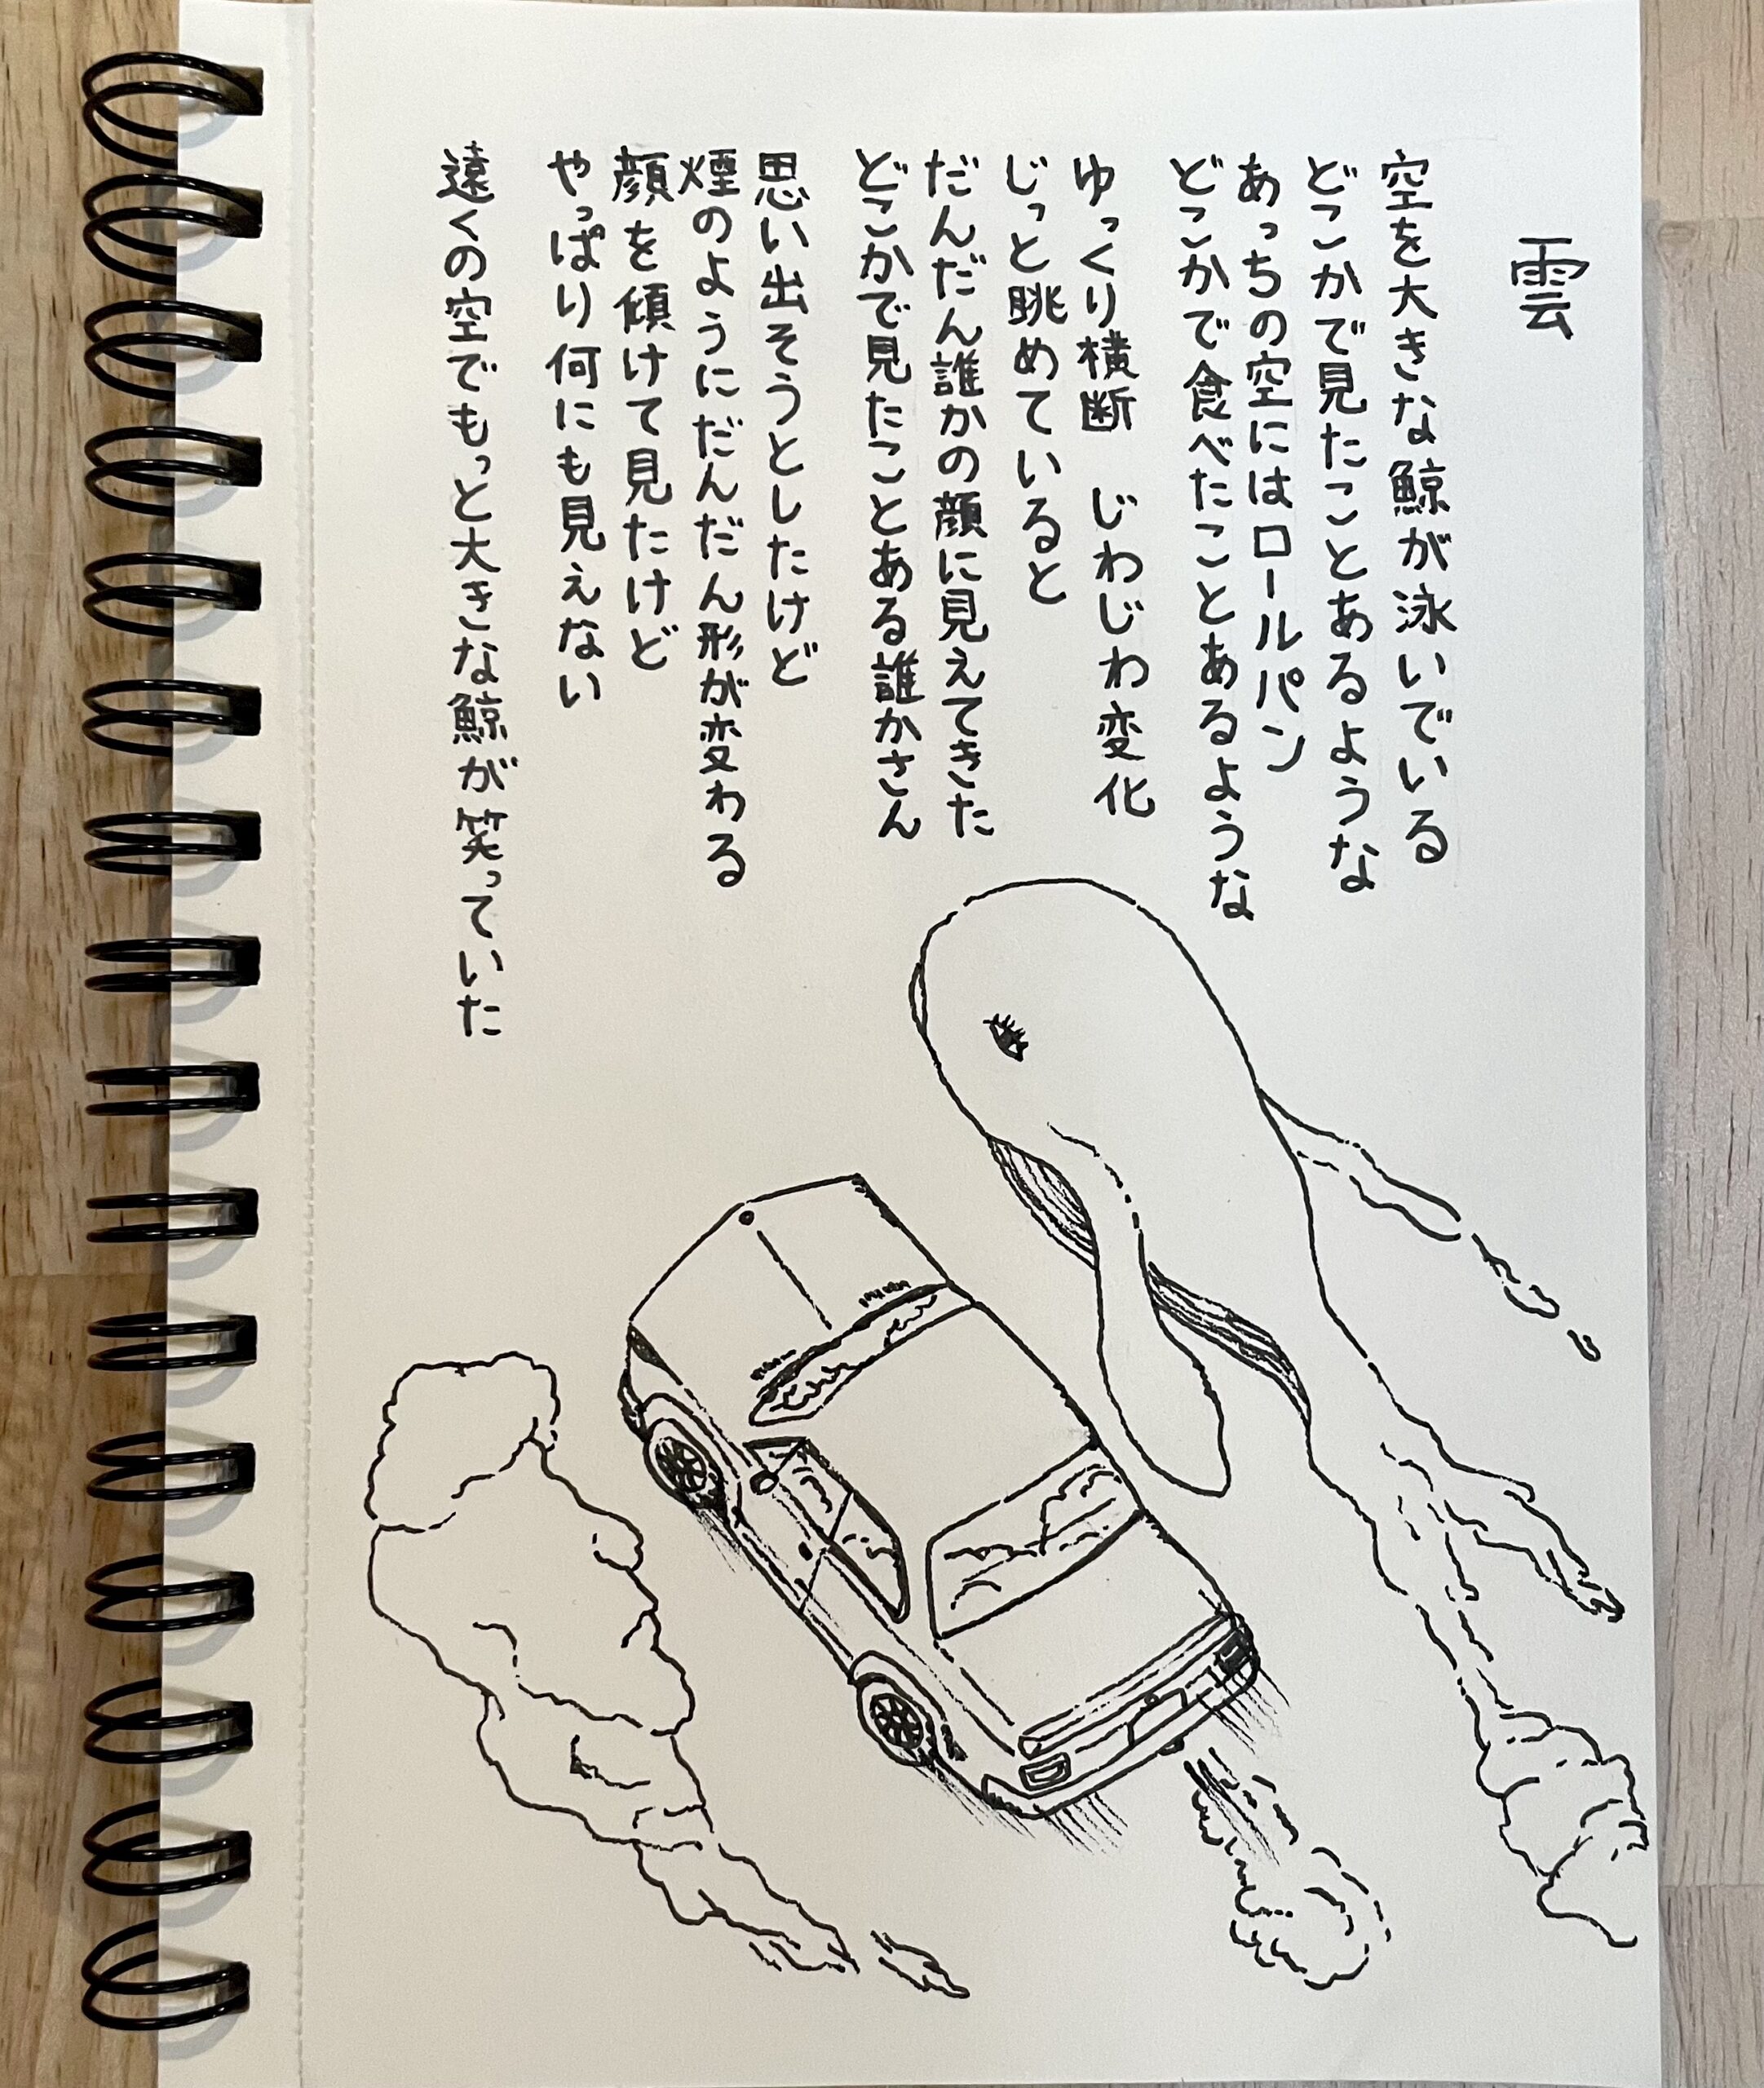 雲
空を大きな鯨が泳いでいる
どこかで見たことあるような
あっちの空にはロールパン
どこかで食べたことあるような
ゆっくり横断　じわじわ変化
じっと眺めていると
だんだん誰かの顔に見えてきた
どこかで見たことある誰かさん
思い出そうとしたけど
煙のようにだんだん形が変わる
顔を傾けて見たけど
やっぱり何にも見えない
遠くの空でもっと大きな鯨が笑っていた